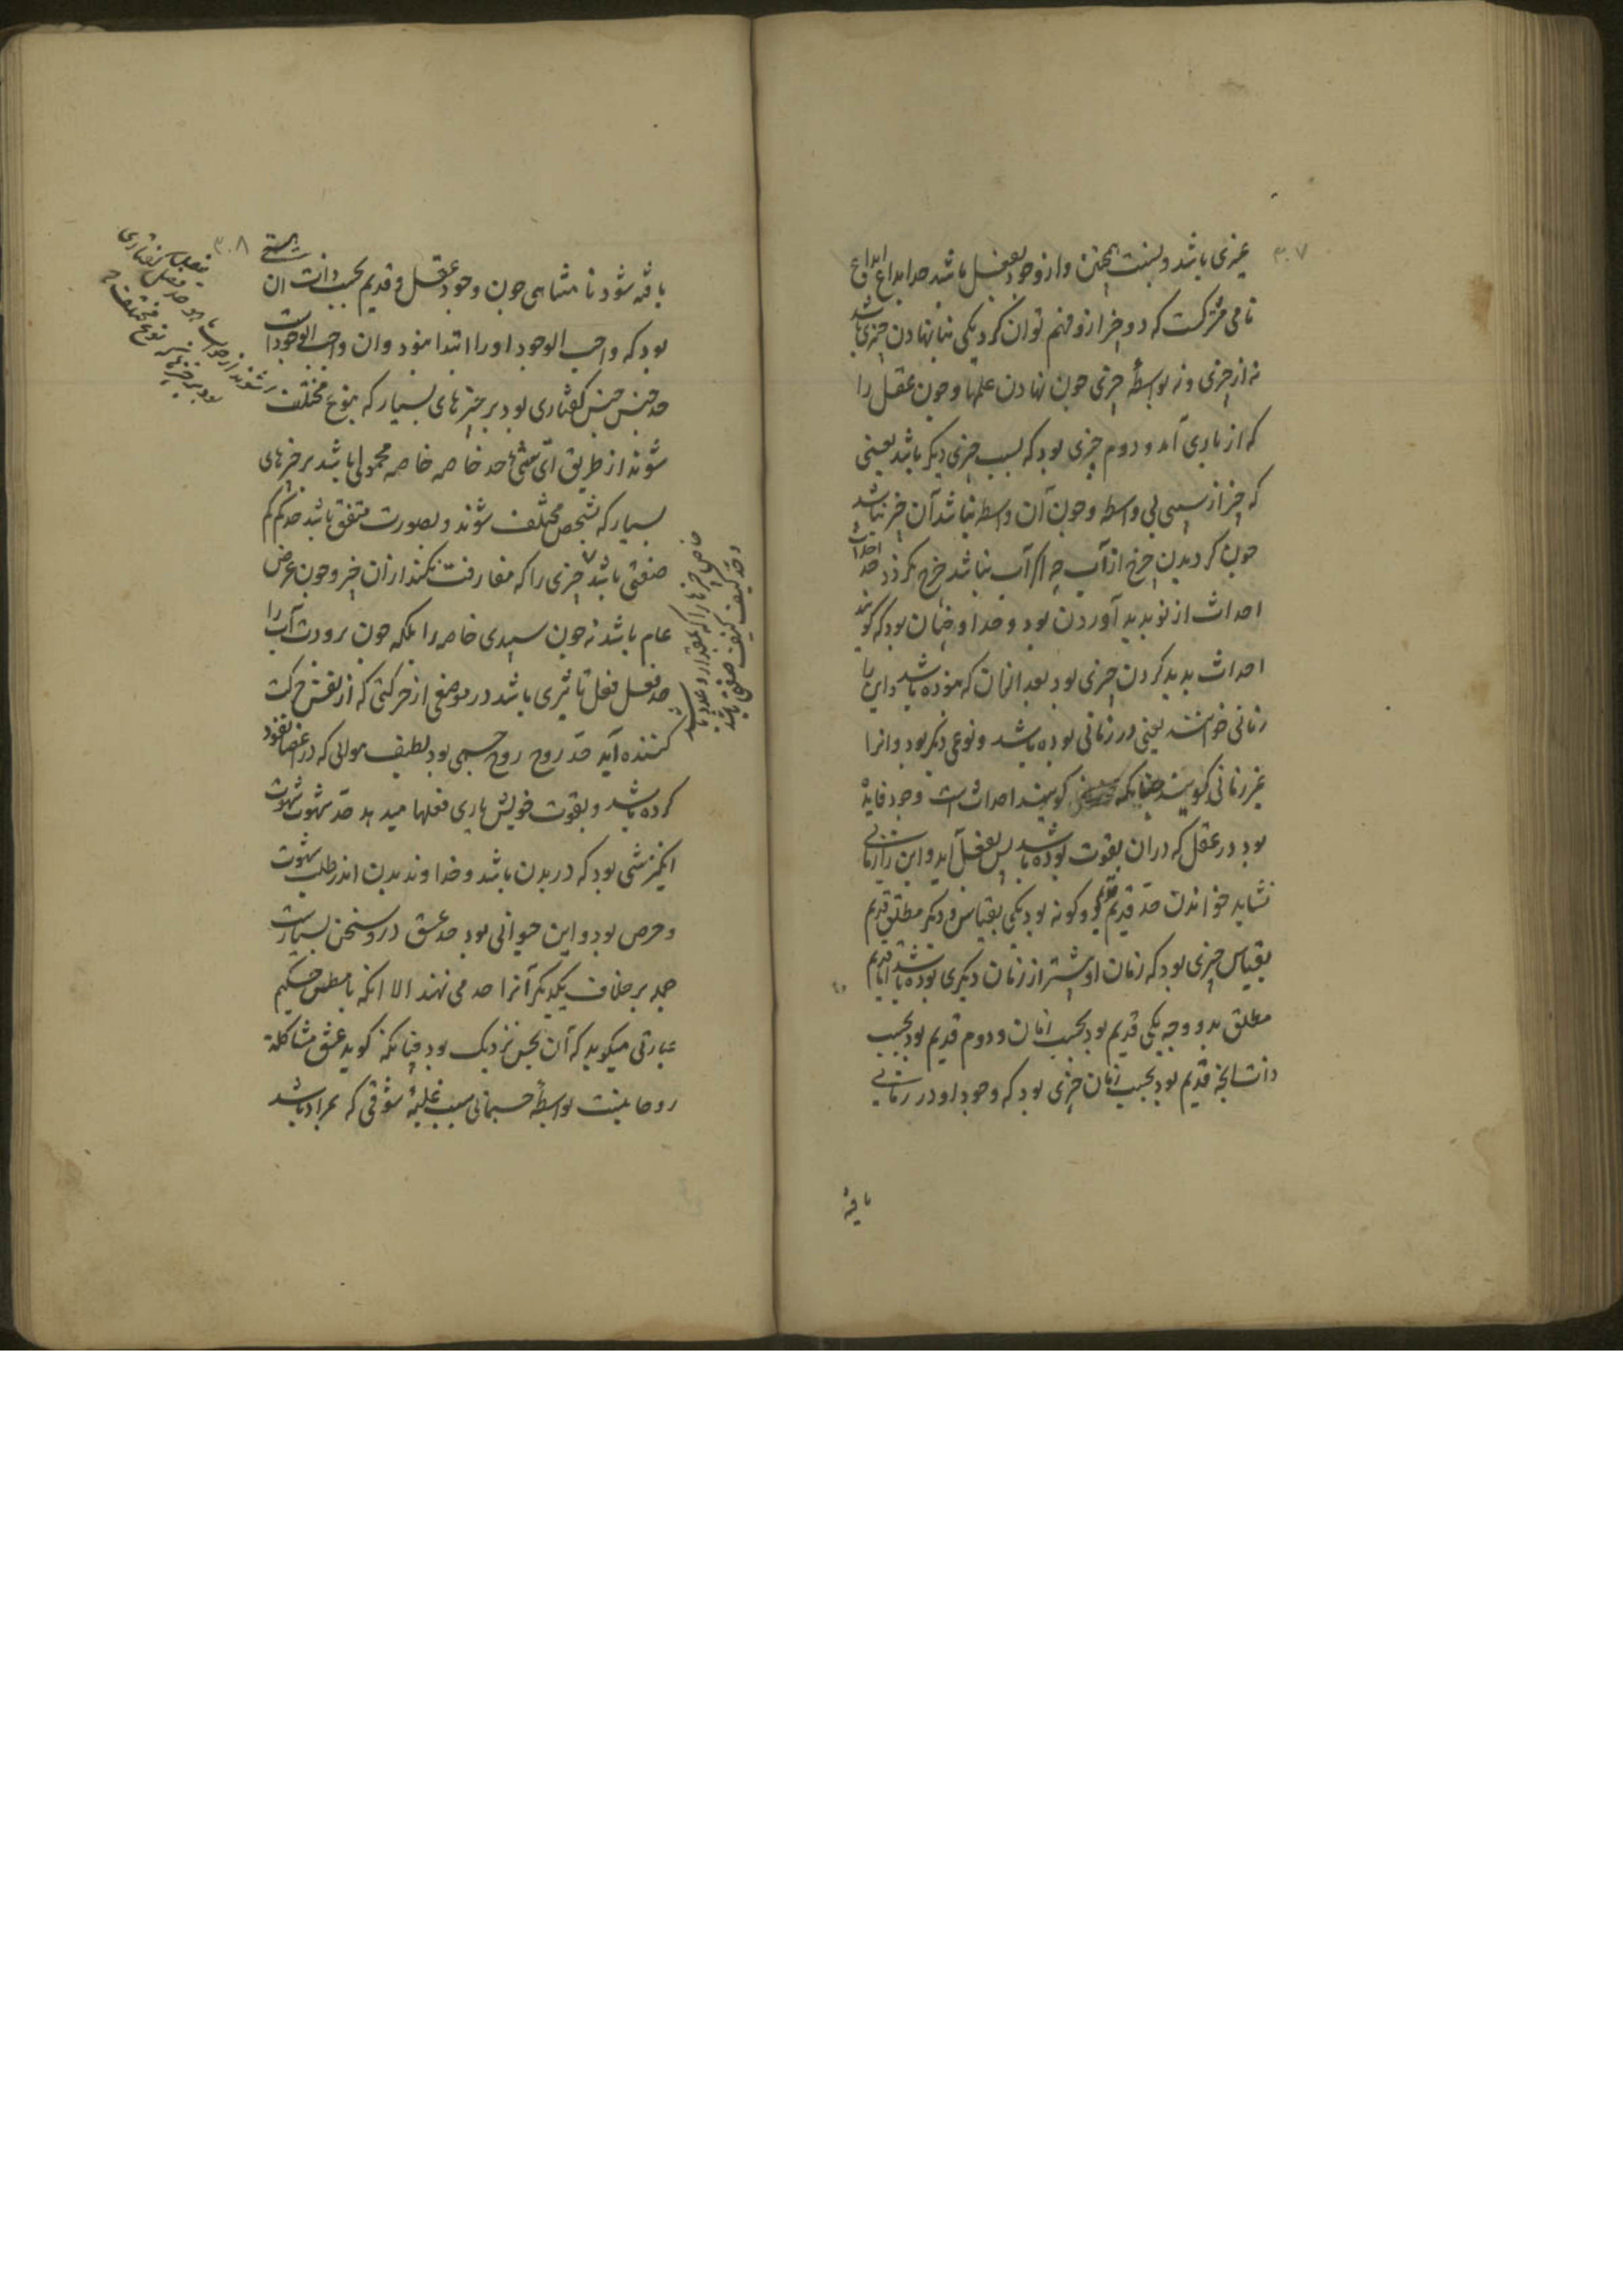 ۳۰۷
غیری باشد و لیست همچنین و از وجود بفعل باشد حد ابداع ابداع
نامی مشترکست که دو چیز ازو فهم توان کرد یکی بنا نهادن چیزی باشد
نه از چیزی و نه بواسطهٔ چیزی چون نهادن علمها و چون عقل را
که از باری آمد و دوم چیزی بود که بسبب چیزی دیگر باشد یعنی
که چیز از سببی بی واسطه و چون آن واسطه نباشد آن چیز نباشد
چون کردیدن چرخ از آب چه اگر آب نباشد چرخ نکردد حد احداث
احداث از نو پدید آوردن بود و حد او چنان بود که کویند
احداث پدید کردن چیزی بود بعد از آن که نبوده باشد و این را
زمانی خوانند یعنی در زمانی بوده باشد و نوعی دیگر بود و آنرا
غیر زمانی کویند چنانکه کویند احداث است وجود فایدهٔ
بود در عقل که در آن بقوت بوده باشد پس بفعل آید و این را زمانی
نشاید خواندن حدّ قدیم قدیم دو کونه بود یکی بقیاس و دیگر مطلق قدیم
بقیاس چیزی بود که زمان او پیشتر از زمان دیگری بوده باشد اما قدیم
مطلق بدو وجه یکی قدیم بود بحسب زمان و دوم قدیم بود بحسب
ذات آنچه قدیم بود بحسب زمان چیزی بود که وجود او در زمانی
یافته
۳۰۸
یافته شود نامتناهی چون وجود عقل و قدیم بحسب ذات آن هستی
بود که واجب الوجود او را ابتدا نبود و آن واجب الوجود است
حد جنس جنس کفتاری بود بر چیزهای بسیار که بنوع مختلف
شوند از طریق ایّ شئ حد خاصه خاصه محمولی باشد بر چیزهای
بسیار که بشخص مختلف شوند و بصورت متفق باشد حد کم کم
صفتی باشد چیزی را که مفارقت نکند از آن چیز و چون عرض
عام باشد نه چون سپیدی خاصه را بلکه چون برودت آب را
حد فعل فعل تاثیری باشد در موضعی از حرکتی که از نفس حرکت
کننده آید حدّ روح روح جسمی بود لطیف هوائی که در اعضا نفوذ
کرده باشد و بقوت خویش یاری فعلها میدهد حدّ شهوت شهوت
انگیزشی بود که در بدن باشد و خداوند بدن اندر طلب شهوت
و حرص بود و این حیوانی بود حد عشق درو سخن بسیارست
جمله بر خلاف یکدیگر آنرا حد می نهند الا انکه ارسطاطالیس حکیم
عبارتی میکوید که آن بحس نزدیک بود چنانکه کوید عشق مشاکلة
روحانیست بواسطهٔ جسمانی سبب غلبهٔ شوقی که بمراد باشد
خاص چیزها را که بمقدار و عدد باشد
و حدّ کیف کیف صفتی باشد